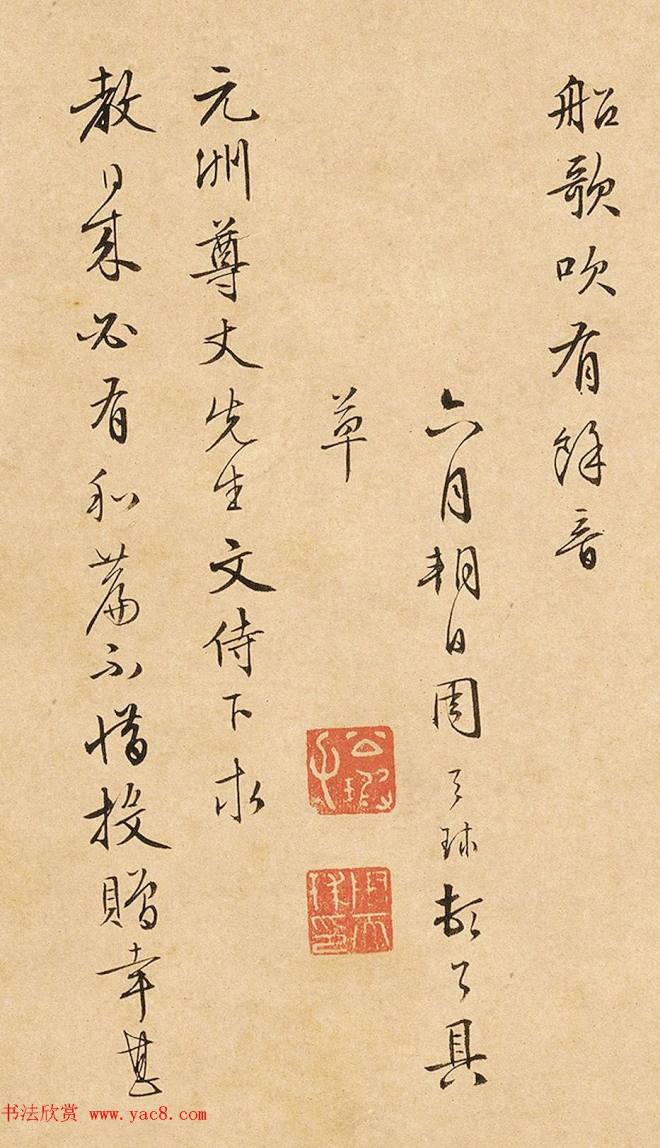 船歌吹有餘音
六月朔日周天球頓首具
草
公瑕
周天球印
元洲尊丈先生文侍下求
教同來必有和篇不惜投贈幸甚
书法欣赏 www.yac8.com